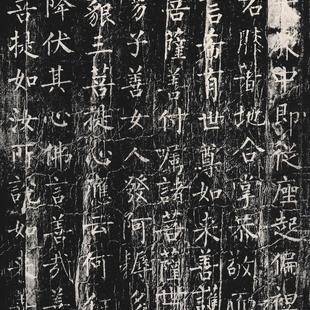 中即從座起偏袒
右膝著地合掌恭敬而
言希有世尊如來善護
菩薩善付囑諸菩薩世
男子善女人發阿耨多
藐三菩提心應云何
降伏其心佛言善哉善
菩提如汝所說如來